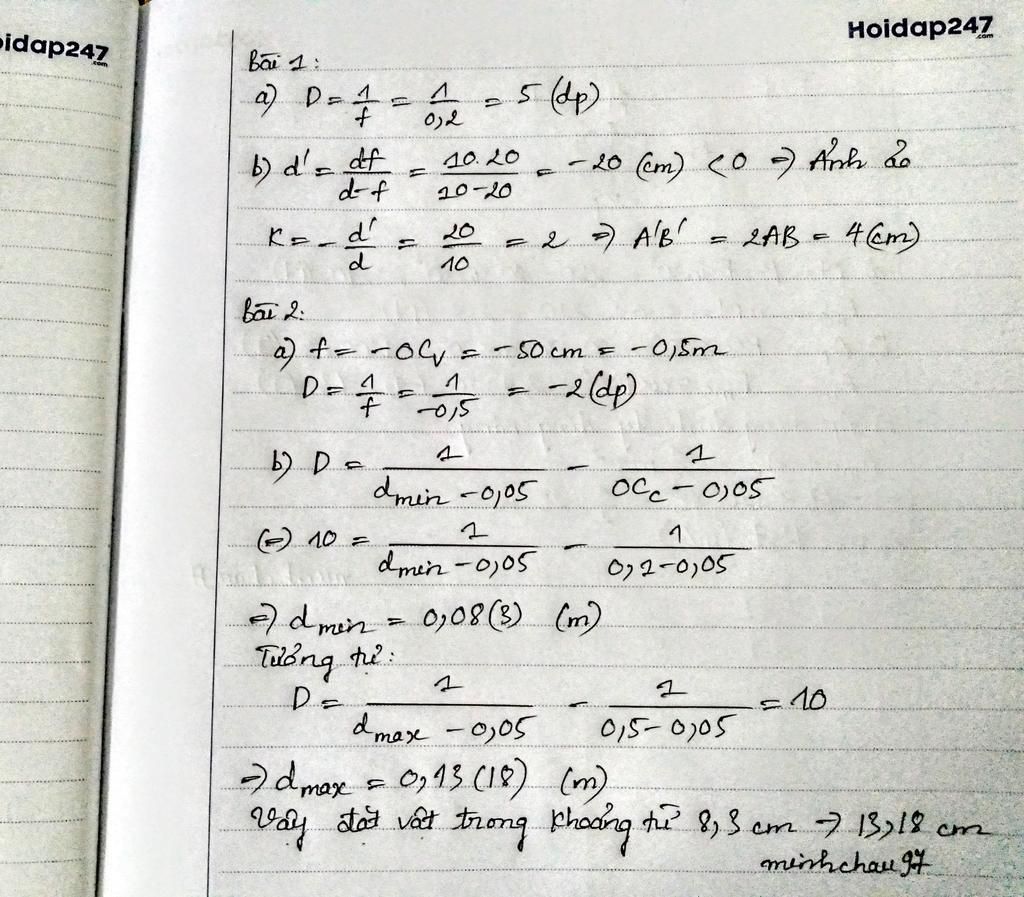 oidap247
.com
Hoidap247
.com
Bài 1:
a) D = 1/f = 1/0,2 = 5 (dp)
b) d' = df/d-f = 10.20/10-20 = -20 (cm) < 0 => Ảnh ảo
K = - d'/d = 20/10 = 2 => A'B' = 2AB = 4(cm)
Bài 2:
a) f = -OCv = -50cm = -0,5m
D = 1/f = 1/-0,5 = -2(dp)
b) D = 1/dmin - 0,05 - 1/OCc - 0,05
(=) 10 = 1/dmin - 0,05 - 1/0,1-0,05
=> dmin = 0,08(3) (m)
Tương tự:
D = 1/dmax - 0,05 - 1/0,5-0,05 = 10
=> dmax = 0,13(18) (m)
Vậy đặt vật trong khoảng từ 8,3 cm -> 13,18 cm
minhchau97